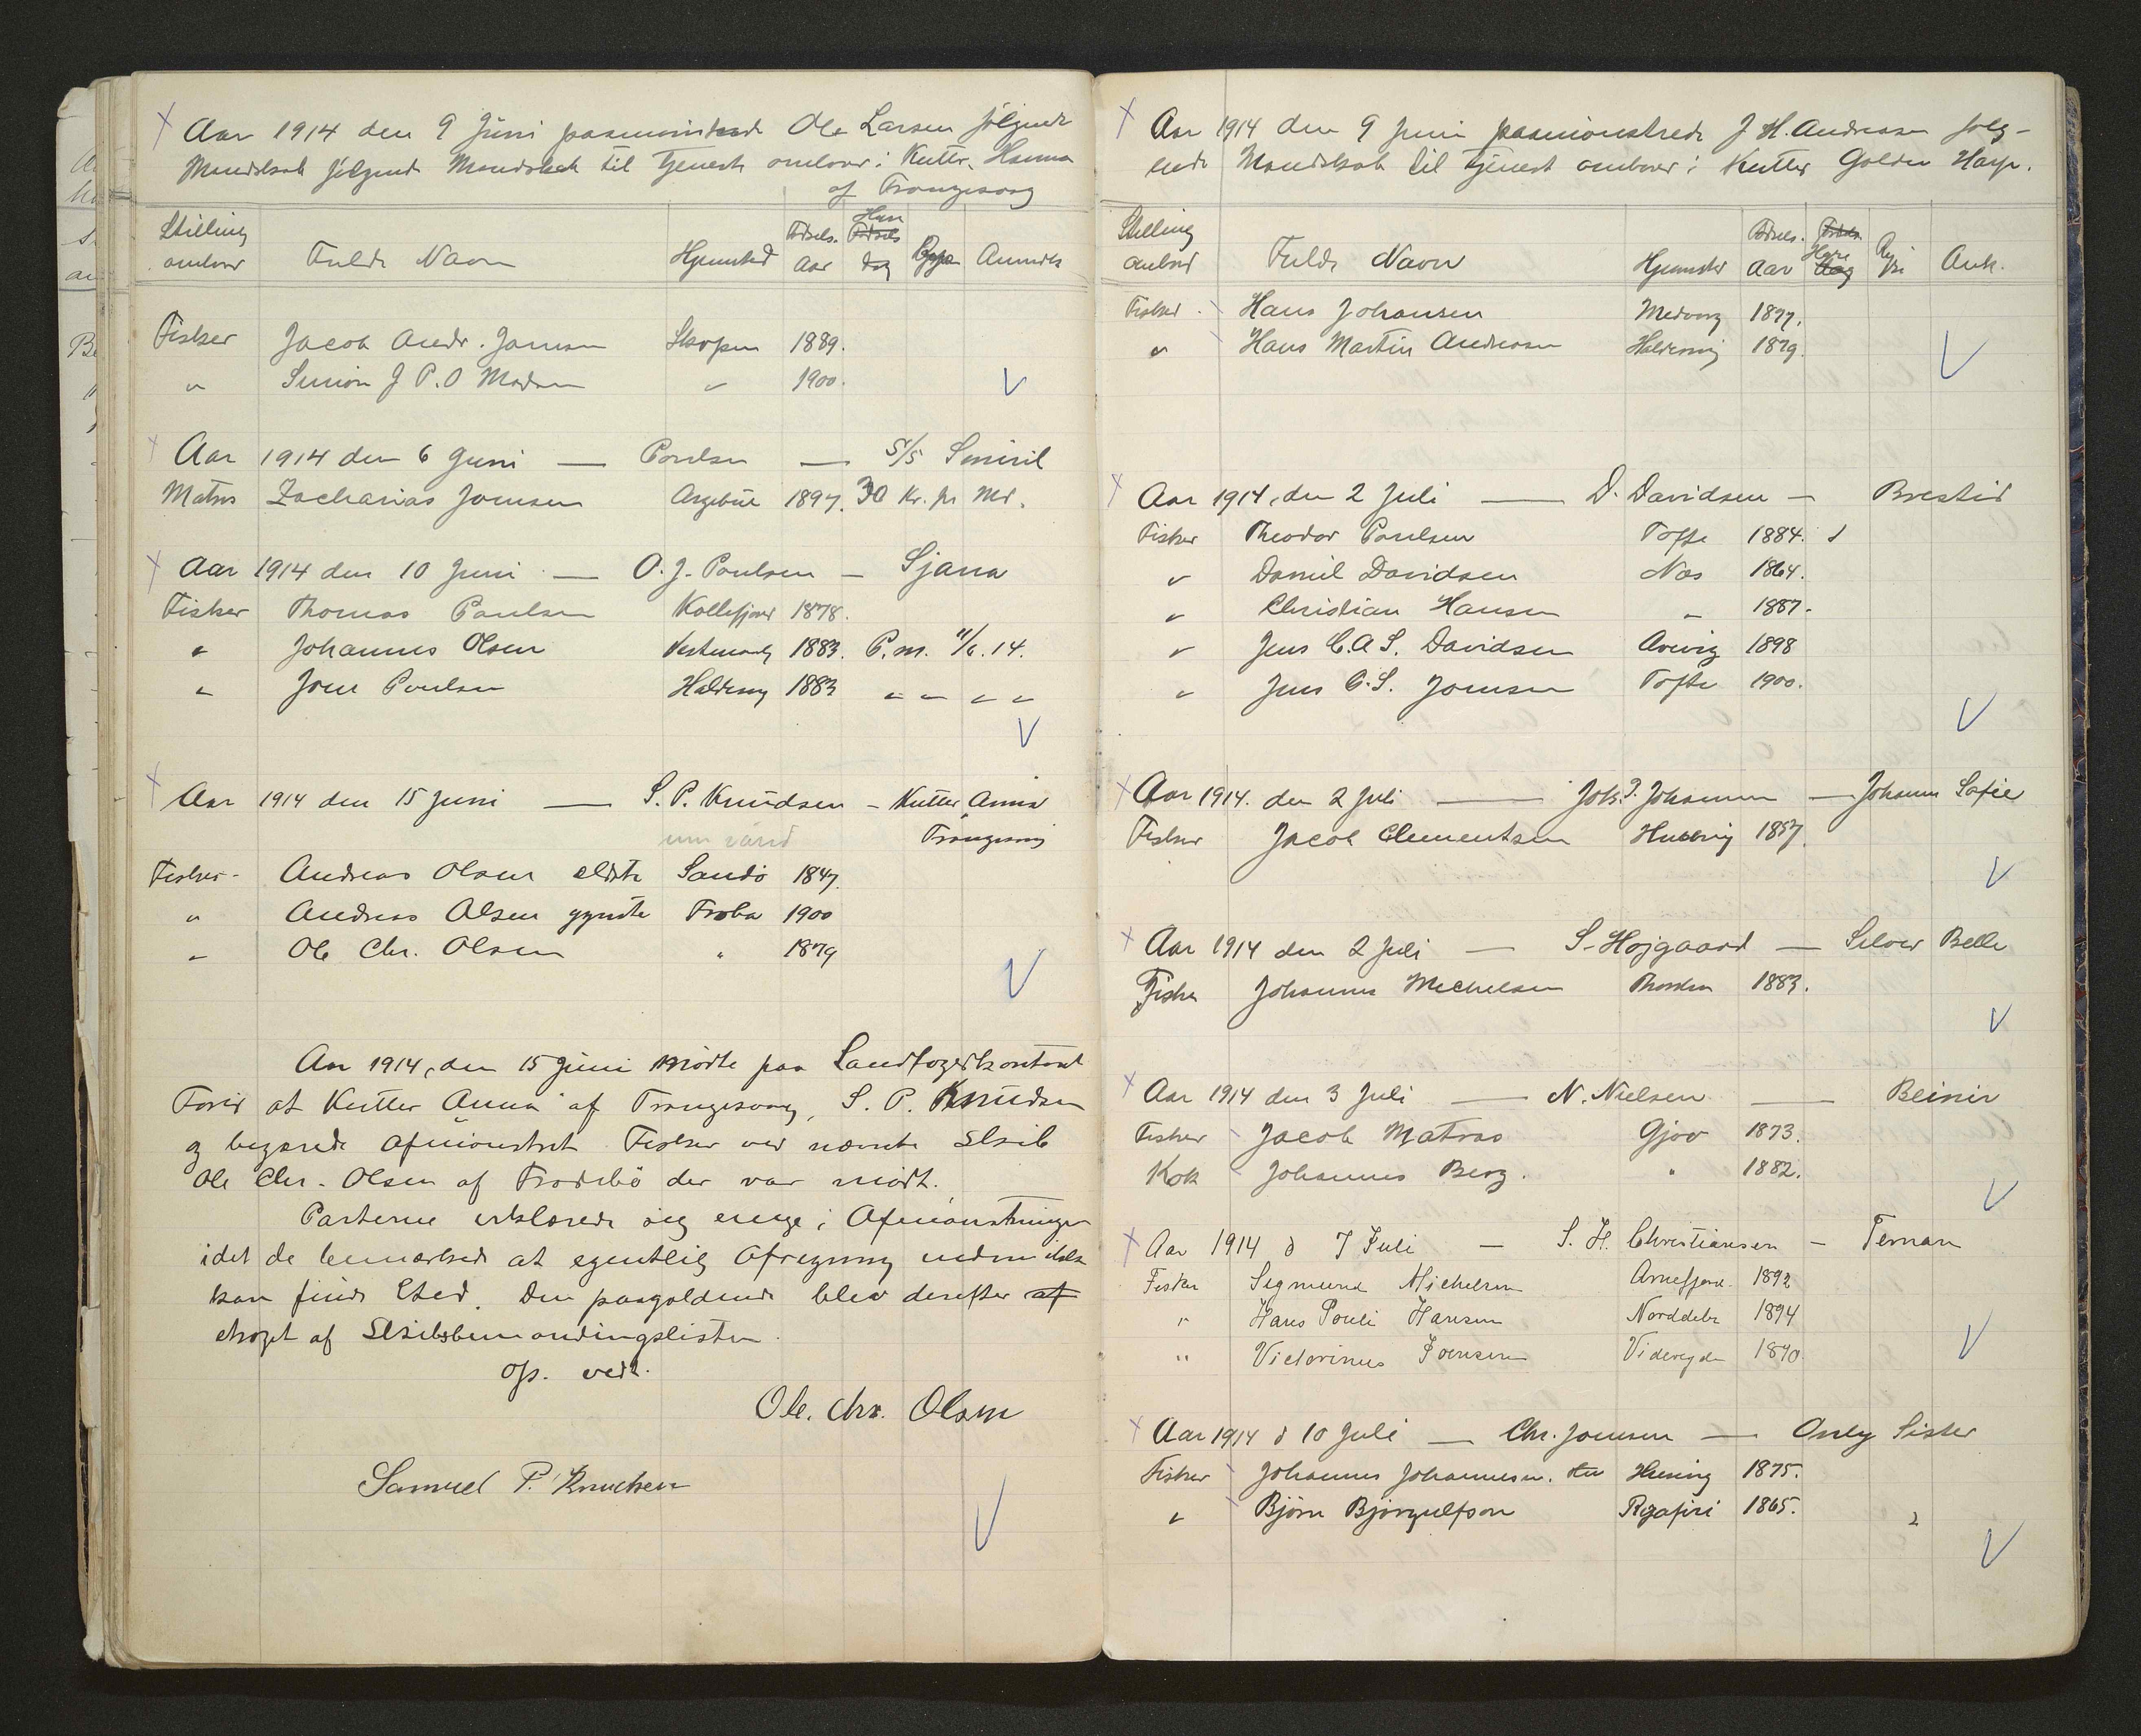 Aar 1914 den 9 Juni paamönstrede Ole Larsen følgende
Mandskab følgende Mandskab til Tjeneste ombord i Kutter Hanna
af Trangisvaag
Stilling ombord Fulde Navn Hjemsted Fødsels Aar Hyre Fødsels dag Rejse Anmærk
Fisker Jacob Andr. Joensen Skopun 1889.
" Simion J P. O Madsen " 1900.
Aar 1914 den 6 Juni — Poulsen — S/S Smiril
Matros Zacharias Joensen Argebüe 1897. 30 Kr. pr Md.
Aar 1914 den 10 Juni — O. J. Poulsen — Sjana
Fisker Thomas Poulsen Kollefjord 1878.
" Johannes Olsen Vestmanh 1883. P.m. 11/6.14.
" Joen Poulsen Haldersvg 1883 " " " "
Aar 1914 den 15 Juni — S. P. Knudsen — Kutter Anna
Trangisvaag
Fisker Andreas Olsen eldste Sandö 1847.
" Andreas Olsen yngste Froba 1900
" Ole Chr. Olsen " 1879
Aar 1914, den 15 Juni mödte paa Landfogedkontoret
Fører at Kutter Anna af Trangisvaag, S. P. Knudsen
og begærede afmönstret Fisker ved nævnte Skib
Ole Chr. Olsen af Frodebö der var mödt.
Parterne erklærede sig enige i Afmönstringen
idet de bemærkede at egentlig Afregning endnu ikke
kan finde Sted. Den paagældende blev derefter af
slröget af Skibsbemandingslisten.
Op. vedt.
Ole. Chr. Olsen
Samuel P. Knudsen
Aar 1914 den 9 Juni paamönstrede J H. Andreasen følg-
ende Mandskab til Tjeneste ombord i Kutter Golden Harp.
Stilling ombord Fulde Navn Hjemsted Fødsels Aar Fødsels Hyre dag Rejse Ank.
Fisker Hans Johansen Midvaag 1877.
" Hans Martin Andreasen Haldersvig 1879.
Aar 1914, den 2 Juli — D. Davidsen — Brestir
Fisker Theodor Poulsen Tofte 1884.
" Daniel Davidsen Næs 1864.
" Christian Hansen " 1887.
" Jens C. A S. Davidsen Arevig 1898
" Jens C. S. Joensen Tofte 1900.
Aar 1914. den 2 Juli — Joh. J. Johansen — Johanne Sofie
Fisker Jacob Clementsen Husevig 1857.
Aar 1914 den 2 Juli — S. Højgaard — Silver Belle
Fisker Johannes Michelsen Thorshn 1883.
Aar 1914 den 3 Juli — N. Nielsen — Beinir
Fisker Jacob Matras Gjov 1873.
Kok Johannes Berg. " 1882.
Aar 1914 d 7 Juli — S. H. Christiansen — Ternan
Fisker Sigmund Michelsen Arnefjord 1892
" Hans Pouli Hansen Norddeble 1894
" Victorinus Joensen Viderejde 1870
Aar 1914 d 10 Juli — Chr. Joensen — Only Sister
Fisker Johannes Johannesen. Husevig 1875.
" Björn Björgulfson 1865.